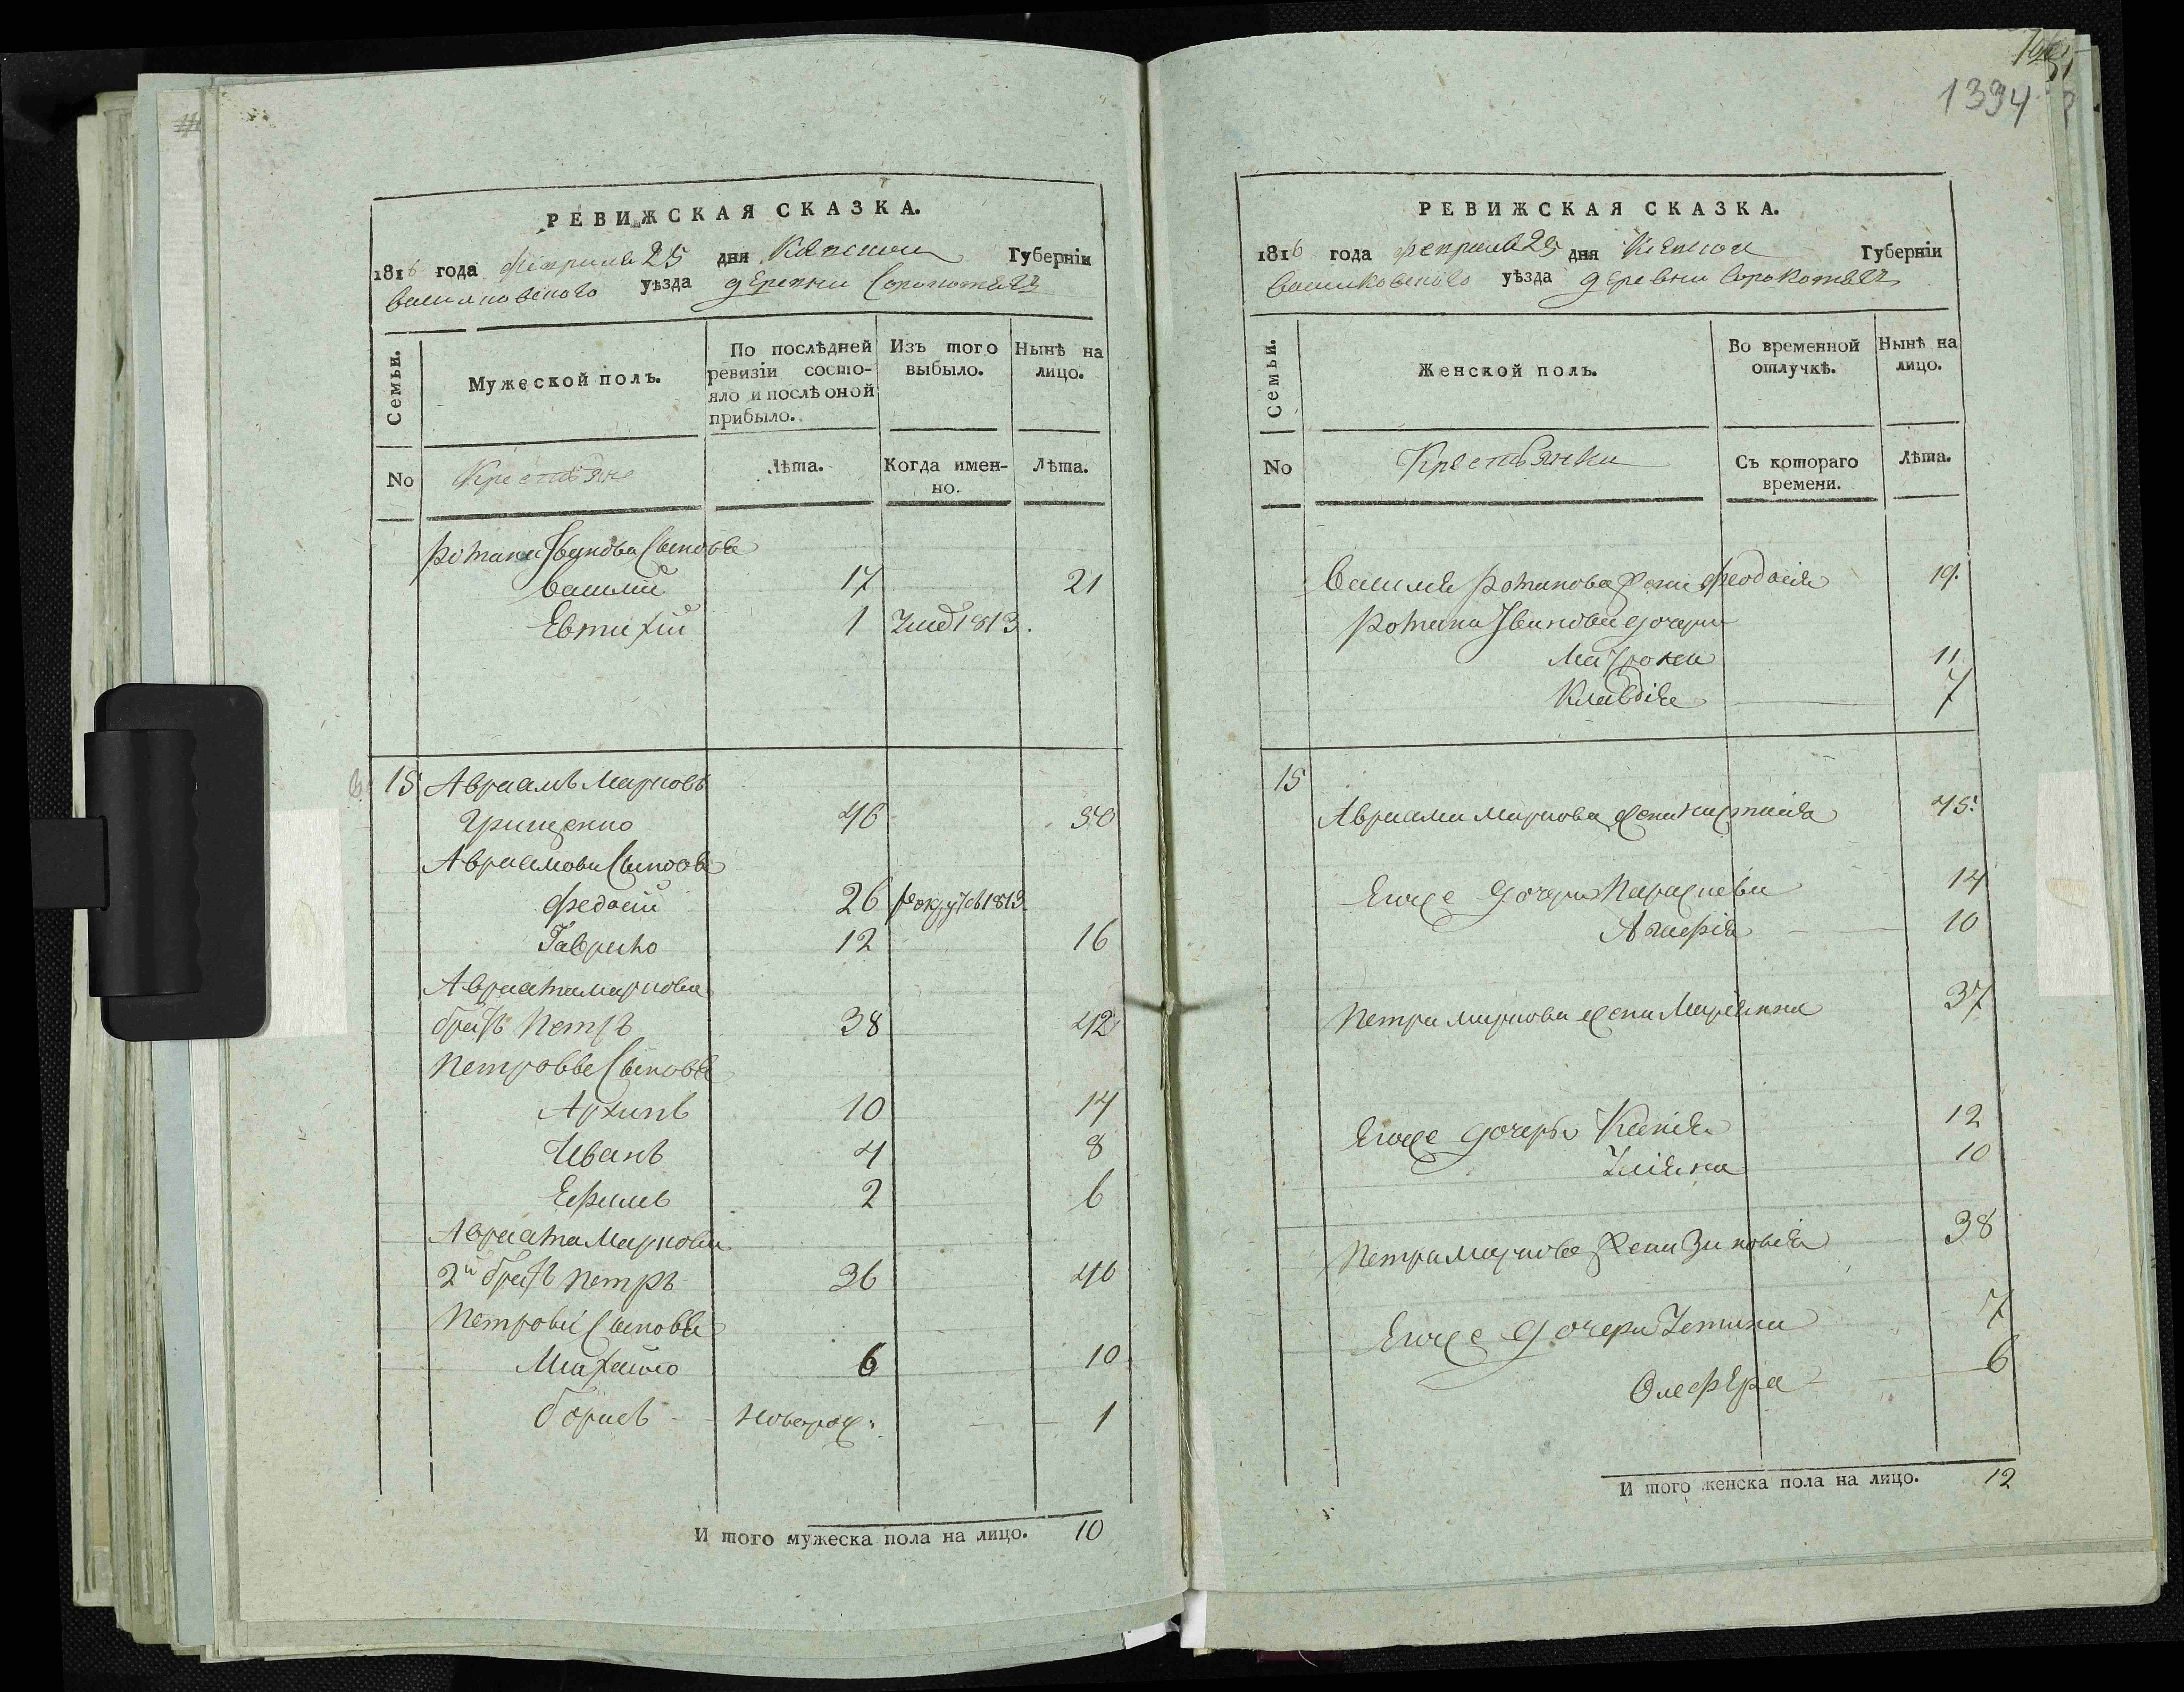 РЕВИЖСКАЯ СКАЗКА.
1816 года февраля 25 дня Кіевской Губерніи
Васильковскаго уѣзда деревни Сорокотягъ
Семьи.
Мужеской полъ.
По послѣдней ревизіи состо-
яло и послѣ оной
прибыло.
Изъ того
выбыло.
Нынѣ на
лицо.
No
Крестьяне
Лѣта.
Когда имен-
но.
Лѣта.
Романа Иванова сыновья
Василий 17 21
Евтихий 1 1813.
15 Авраамъ Марковъ
Грищенко 46 50
Авраамовы сыновья
Федосий 26 рекрут. 1813
Гаврило 12 16
Авраама Маркова
братъ Петръ 38 42
Петровы сыновья
Архипъ 10 14
Иванъ 4 8
Ефимъ 2 6
Авраама Маркова
2й братъ Петръ 36 40
Петровы сыновья
Михайло 6 10
Борисъ - новорож: 1
И того мужеска пола на лицо. 10
1394
РЕВИЖСКАЯ СКАЗКА.
1816 года февраля 25 дня Кіевской Губерніи
Васильковскаго уѣзда деревни Сорокотягъ
Семьи.
Женской полъ.
Во временной
отлучкѣ.
Нынѣ на
лицо.
No
Крестьянки
Съ котораго
времени.
Лѣта.
Василя Романова жена Феодосія 19.
Романа Иванова дочери
Матрона 11
Клавдія 7
15
Авраама Маркова жена Настасія 45.
Егоже дочери Параскева 14
Агафія 10
Петра Маркова жена Маріанна 37
Егоже дочери Ксенія 12
Уліяна 10
Петра Маркова жена Зиновія 38
Егоже дочери 7
Олефѣра 6
И того женска пола на лицо. 12